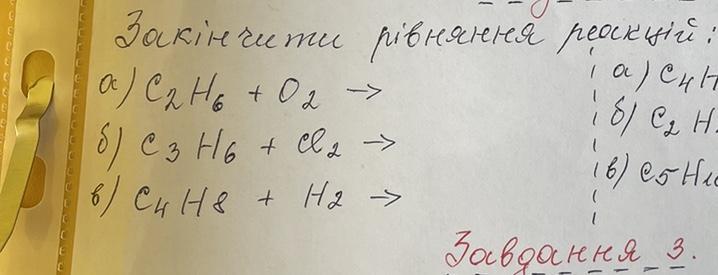 Закінчити рівняння реакцій:
а) C₂H₆ + O₂ →
б) C₃H₆ + Cl₂ →
в) C₄H₈ + H₂ →
а) C₄H
б) C₂H
в) C₅H
Завдання 3.